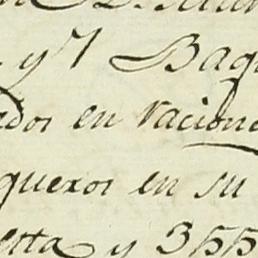 y 7 Baq
ados en racion
queros en su
etta y 355